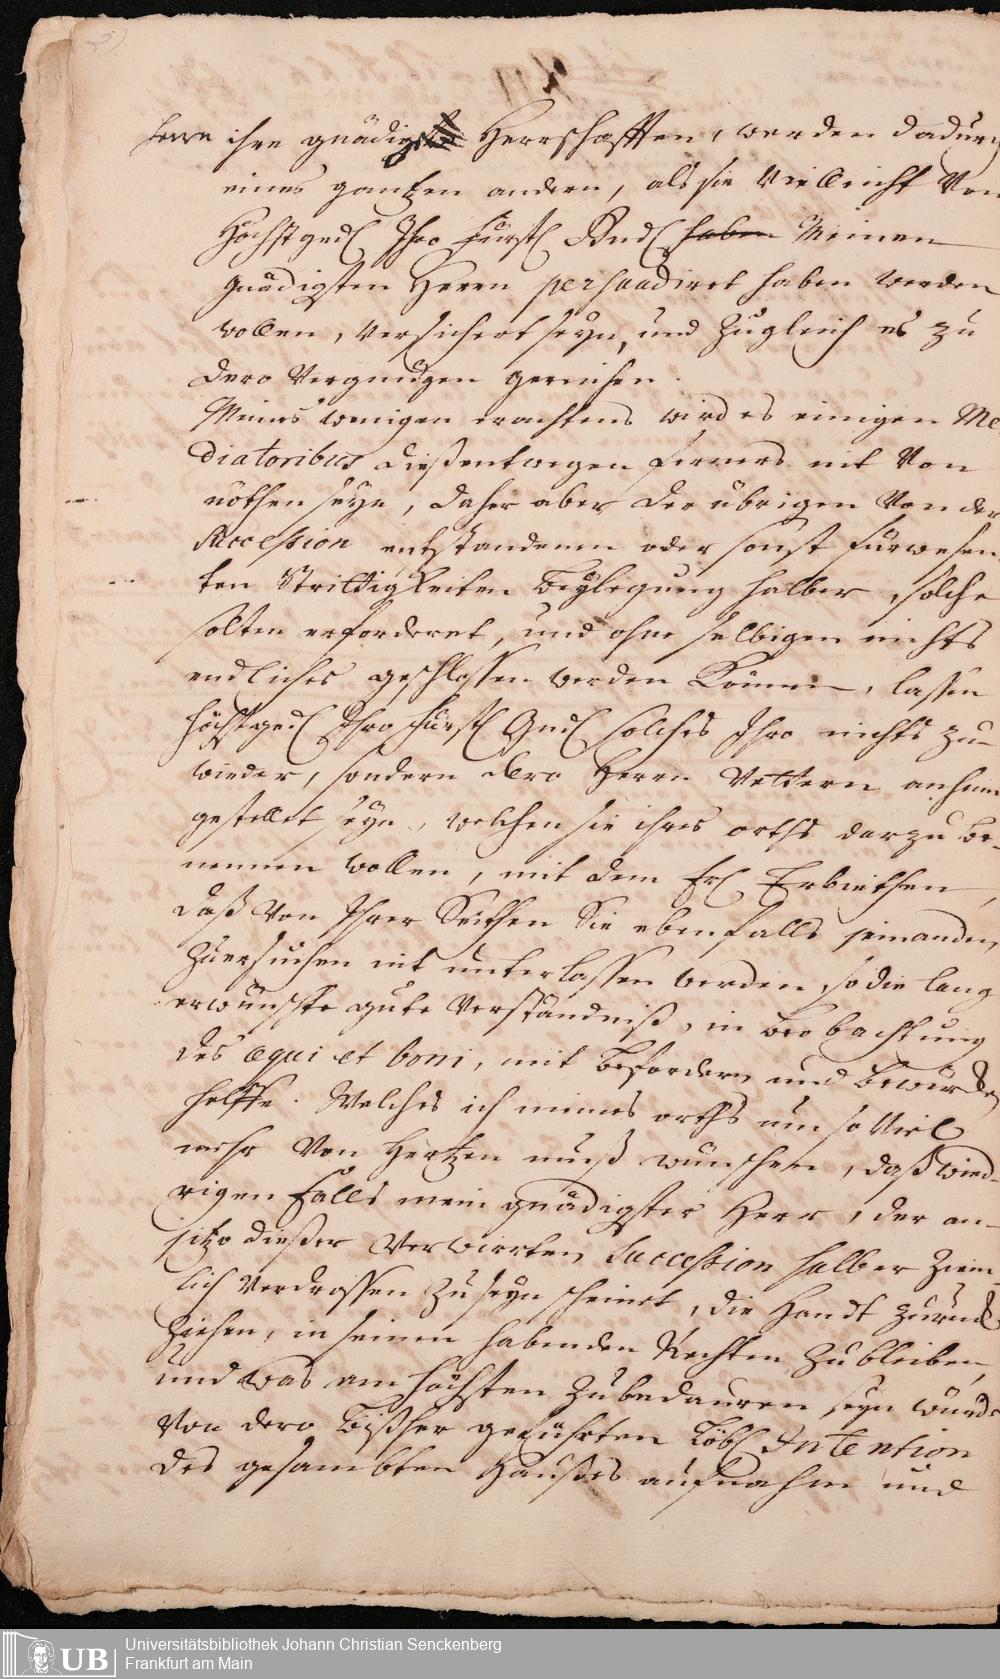 herrn ihre gnädigste Herrschafften, werden dadurch
eines gantzen andern, als sie vielleicht von
Höchstged. Ihro Fürstl. Gnd. haben Meinem
gnädigsten Herrn persuadiret haben werden
wollen, versichert seyn, und zugleich es zu
dero Vergnügen gereichen.
Meines wenigen erachtens wird es einigen Me-
diatoribus dießentwegen ferners nit von
nöthen seyn, daher aber der übrigen von der
Succession entstandenen oder sonst fürwesen-
ten Strittigkeiten Beylegung halber, solche
solten erforderet, und ohne selbigen nichts
endliches geschlossen werden können, lassen
höchstged. Ihro Fürstl. Gnd. solches Ihro nichts zu-
wieder, sondern dero Herrn Vettern anheim
gestellet seyn, welchen sie ihres orths darzu be-
nennen wollen, mit dem Erbiethen,
daß von Ihrer Seithen Sie ebenfalls jemanden
zuersuchen nit unterlassen werden, so die lang
erwünschte gute Verständniß, in beobachtung
des aequi et boni, mit befordern und bewürcken
helffe. Welches ich meines orths um so viel
mehr von Hertzen muß wünschen, daß wied-
rigen Falls mein gnädigster Herr, der an-
jetzo dießer verwirrten Succession halber ziem-
lich verdrossen zu seyn scheinet, die Handt zurück
ziehen, in seinen habenden Rechten zu bleiben,
und was am höchsten zu bedauren seyn würde
von dero bißher geführten löbl. Intention
des gesambten Haußes aufnahm und
Universitätsbibliothek Johann Christian Senckenberg
Frankfurt am Main
UB